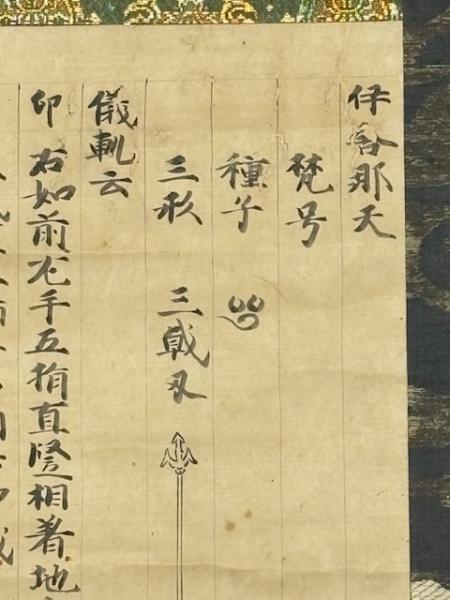 伊舎那天
梵号
種子
三形 三戟刄
儀軌云
印 右如前左手五指直竪相着地